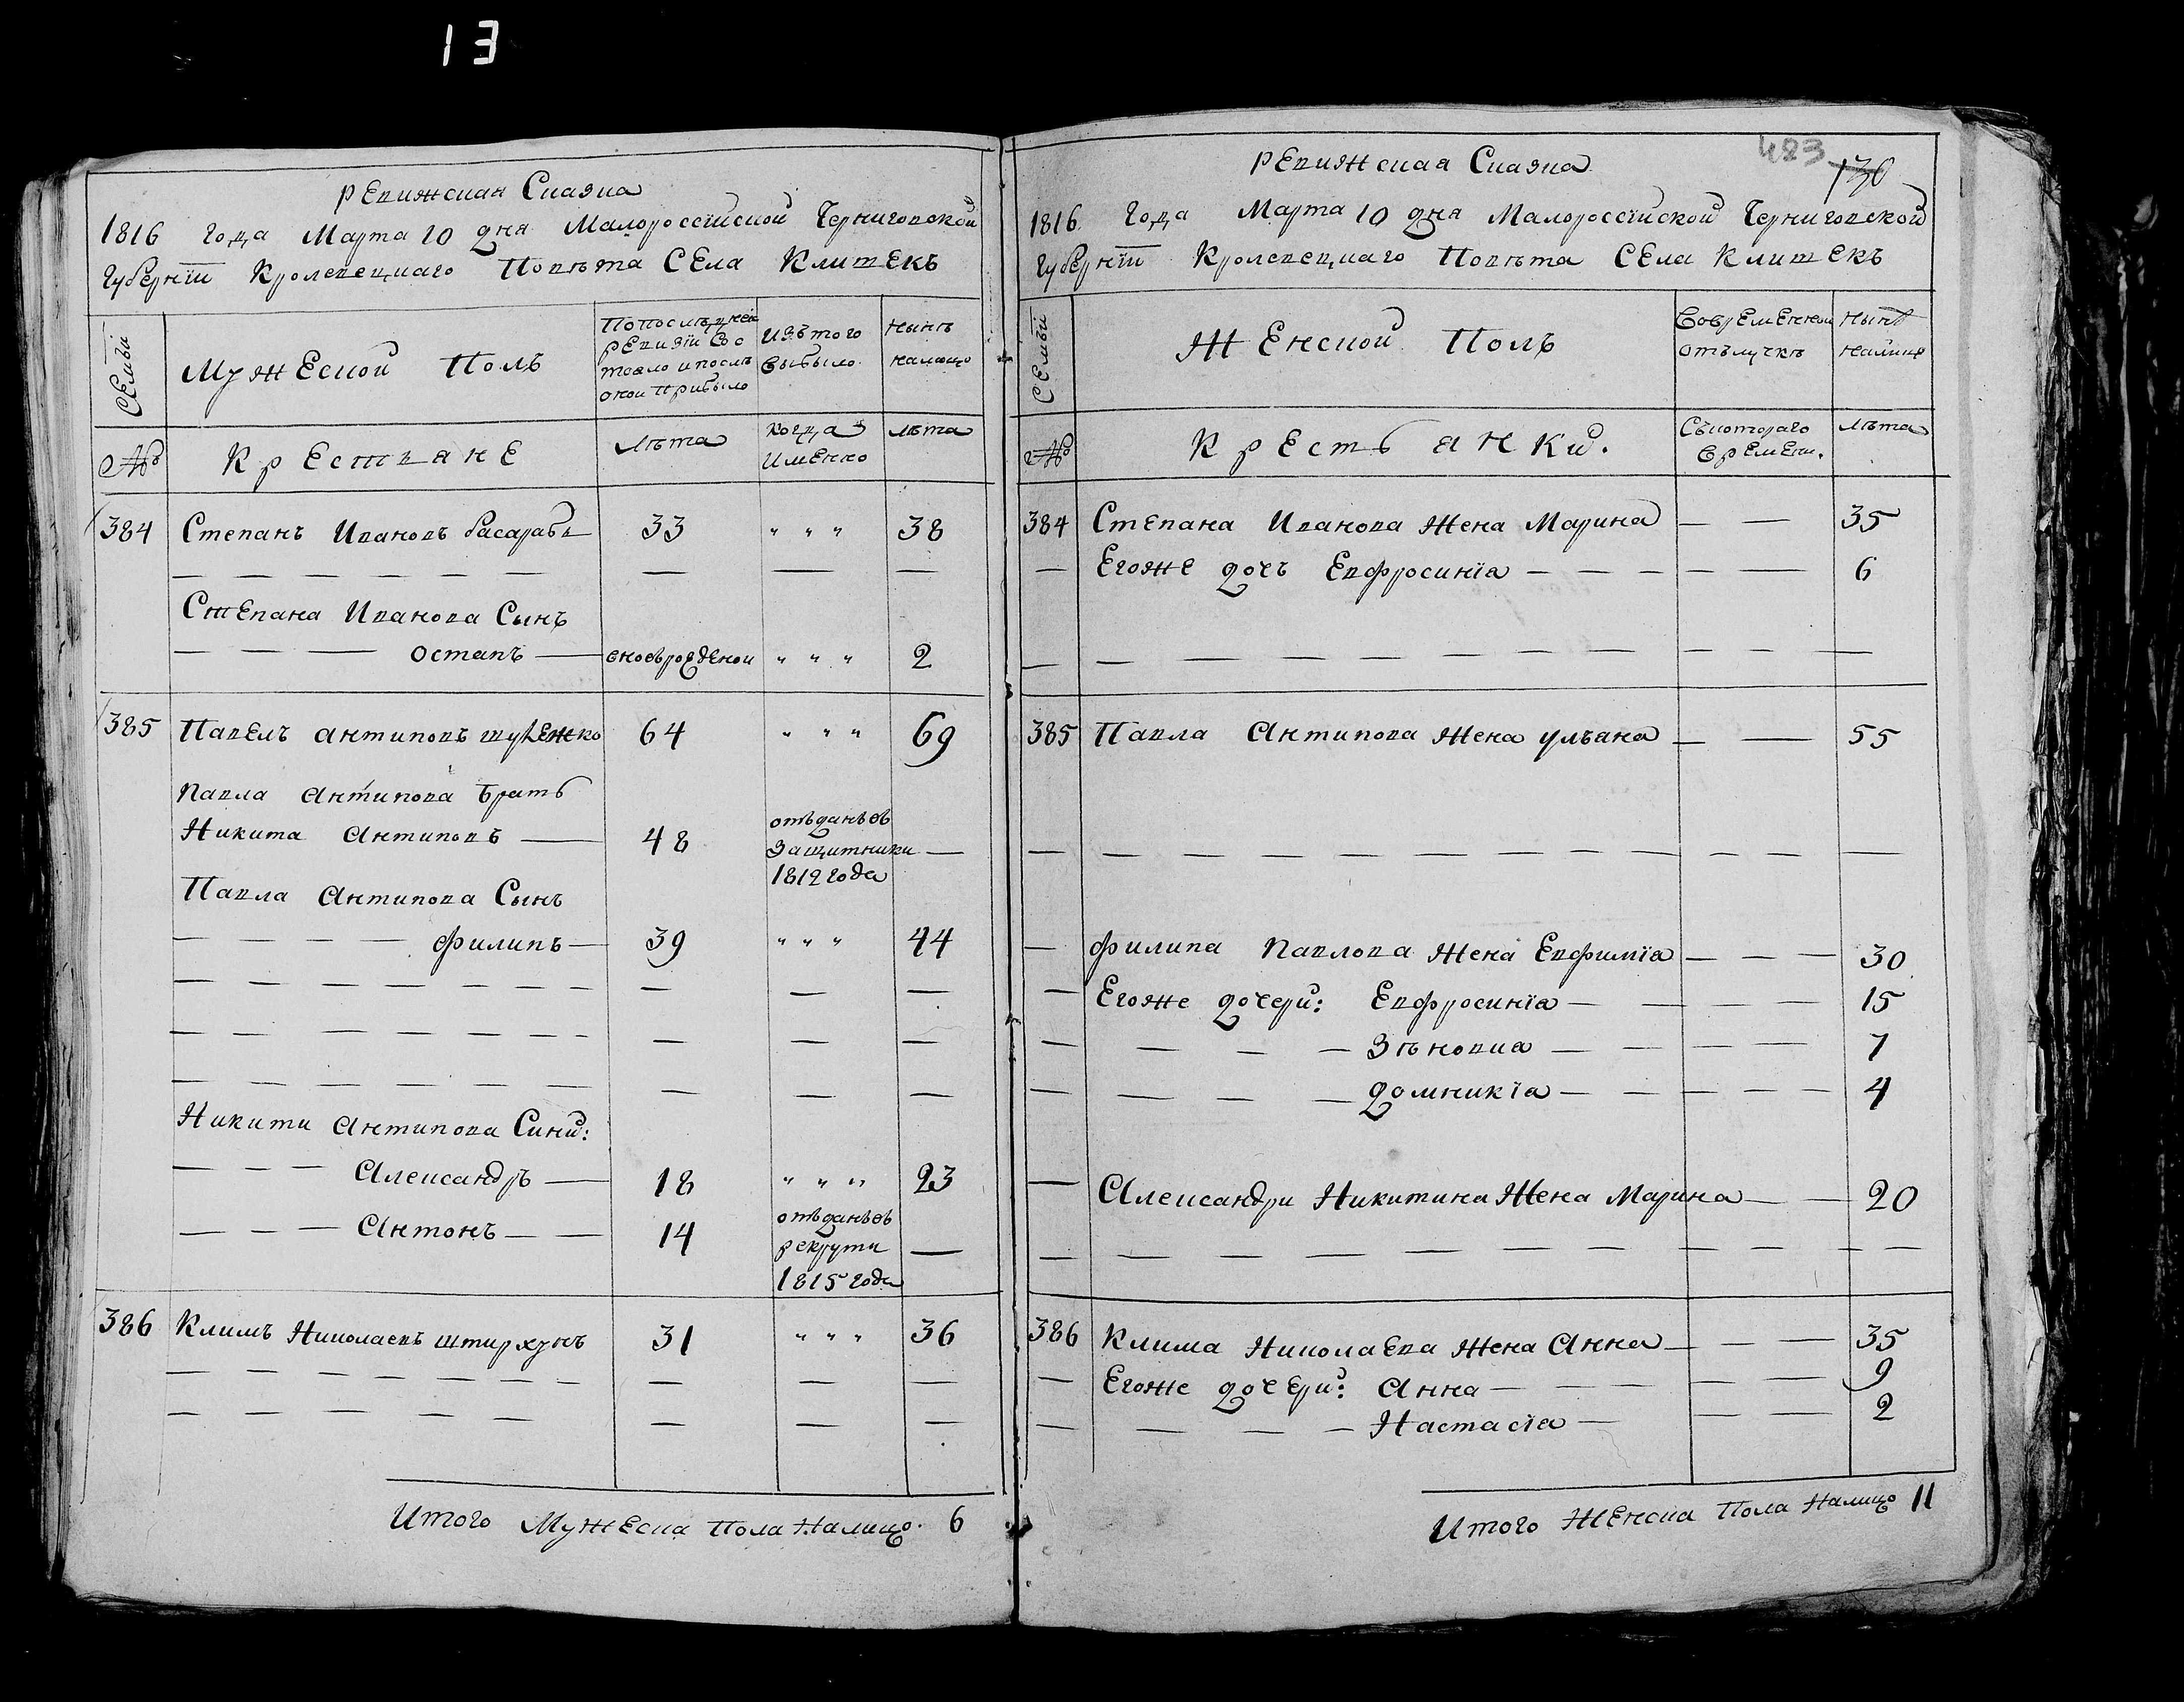 13
Ревижская Сказка
1816 Года Марта 10 дня Малоросеїйской Черниговской
Губернїи Кролевецкаго Повѣта Села Клишекъ
Семьи
Мужеской Полъ
По последней ревизіи состояло и после оной прибыло
Изъ того выбыло
Нынѣ налицо
№
Крестяне
Лѣта
Когда именно
Лѣта
384 Степанъ Ивановъ Басарабъ 33 " " " 38
Степана Иванова Сынъ
Остапъ вновьрожденой " " " 2
385 Павелъ Антиповъ 64 " " " 69
Павла Антипова Братъ
Никита Антиповъ 48 отъданъ въ защитники 1812 года
Павла Антипова Сынъ
Филипъ 39 " " " 44
Никити Антипова Сини:
Александръ 18 " " " 23
Антонъ 14 отъданъ въ рекрути 1815 года
386 Климъ Николаевъ Штирхунъ 31 " " " 36
Итого Мужеска Пола Налицо 6
423
136
Ревижская Сказка
1816 Года Марта 10 дня Малоросеїйской Черниговской
Губернїи Кролевецкаго Повѣта Села Клишекъ
Семьи
Женской Полъ
Во временной отълучкѣ
Нынѣ налицо
№
Крестьянки.
Съ котораго времени.
Лѣта
384 Степана Иванова Жена Марина 35
Егоже дочъ Евфросинїа 6
385 Павла Антипова Жена Улъяна 55
Филипа Павлова Жена Евфимїа 30
Егоже дочери: Евфросинїа 15
Зѣновиа 7
Домникїа 4
Александри Никитина Жена Марина 20
386 Клима Николаева Жена Анна 35
Егоже дочери: Анна 9
Настасїа 2
Итого Женска Пола Налицо 11